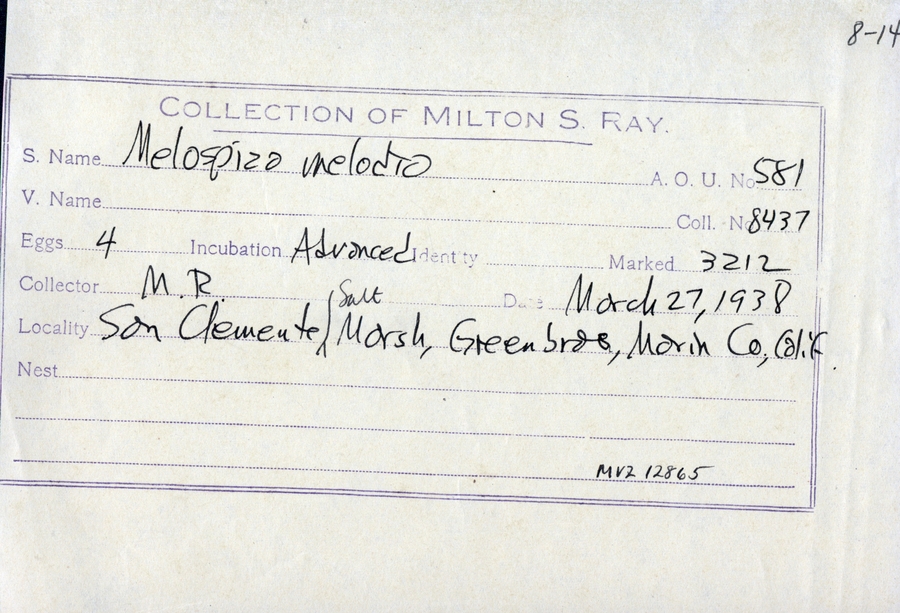 8-14
COLLECTION OF MILTON S. RAY.
S. Name Melospiza melodia A. O. U. No 581
V. Name Coll. No 8437
Eggs 4 Incubation Advanced Identity Marked 3212
Collector M. R. Date March 27, 1938
Locality San Clemente Salt Marsh, Greenbrae, Marin Co, Calif.
Nest
MVZ 12865